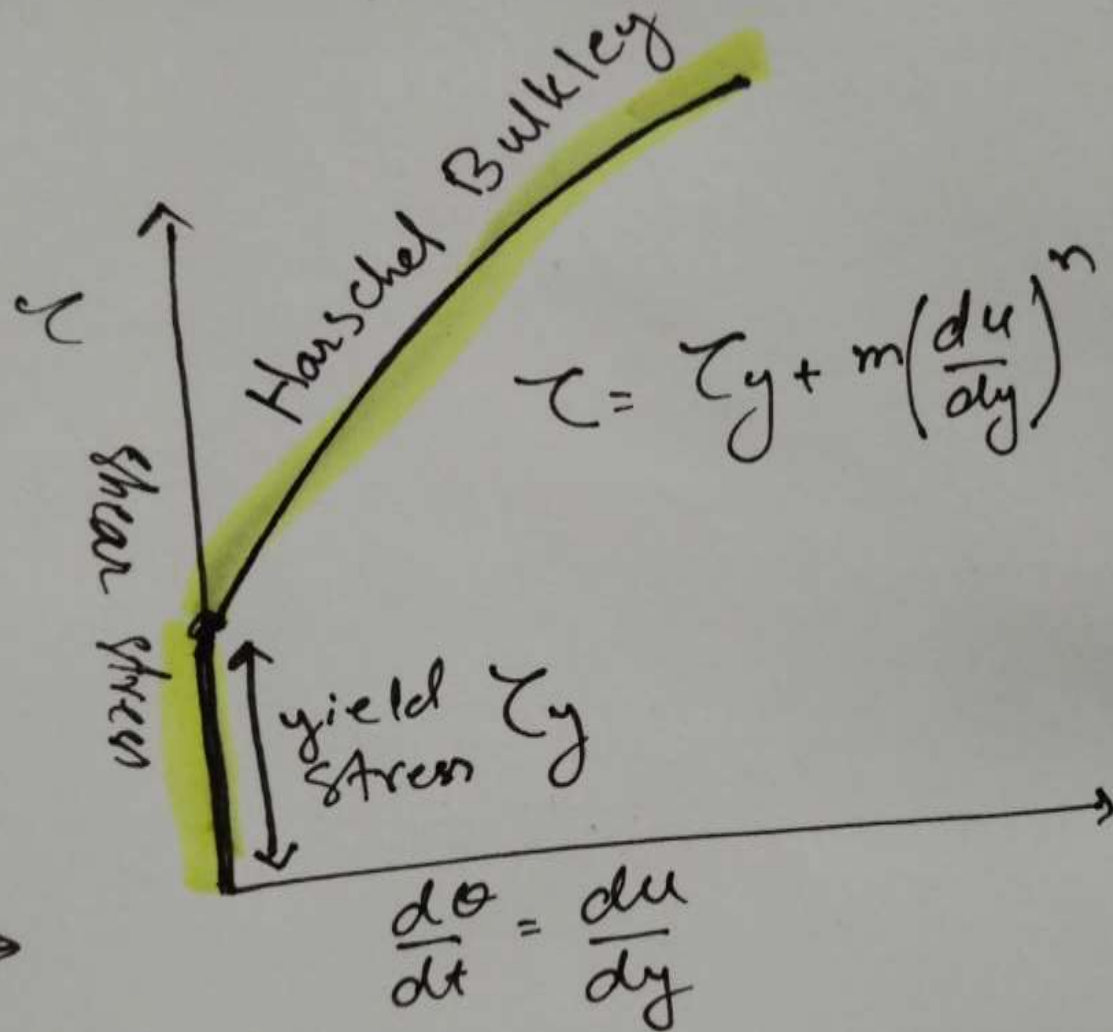 Harschel Bulkley
τ
shear stress
τ = τy + m(du/dy)^n
yield τy
stress
dθ/dt = du/dy